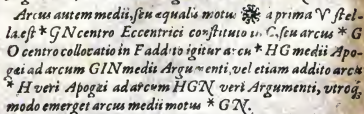 Arcus autem medii, seu equalis motus ☀ a prima ♈ stel-
la est * GN centro Eccentrici constituto in C, seu arcus * G
O centro collocatio in F addito igitur arcu * HG medii Apo-
gei ad arcum GIN medii Argumenti, vel etiam addito arcu
* H veri Apogei ad arcum HGN veri Argumenti, utroq;
modo emerget arcus medii motus * GN.